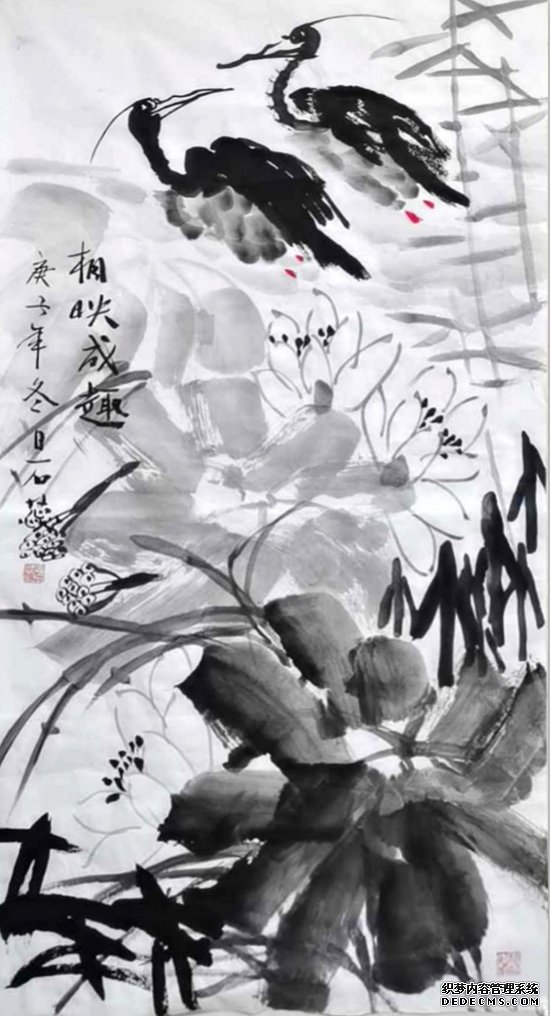 相映成趣
庚子年冬日石
织梦内容管理系统
DEDECMS.COM